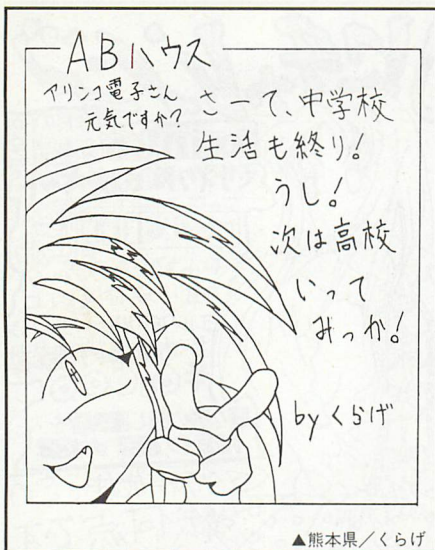 ABハウス
アリンコ電子さん
元気ですか?
さーて、中学校
生活も終り!
うし!
次は高校
いって
みっか!
by くらげ
▲熊本県/くらげ